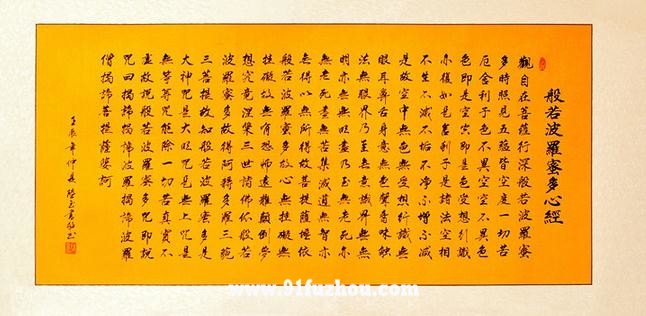 般若波羅蜜多心經
觀自在菩薩行深般若波羅蜜
多時照見五蘊皆空度一切苦
厄舍利子色不異空空不異色
色即是空空即是色受想行識
亦復如是舍利子是諸法空相
不生不滅不垢不淨不增不減
是故空中無色無受想行識無
眼耳鼻舌身意無色聲香味觸
法無眼界乃至無意識界無無
明亦無無明盡乃至無老死亦
無老死盡無苦集滅道無智亦
無得以無所得故菩提薩埵依
般若波羅蜜多故心無挂礙無
挂礙故無有恐怖遠離顛倒夢
想究竟涅槃三世諸佛依般若
波羅蜜多故得阿耨多羅三藐
三菩提故知般若波羅蜜多是
大神咒是大明咒是無上咒是
無等等咒能除一切苦真實不
虛故說般若波羅蜜多咒即說
咒曰揭諦揭諦波羅揭諦波羅
僧揭諦菩提薩婆訶
壬辰年仲夏
www.91fuzhou.com